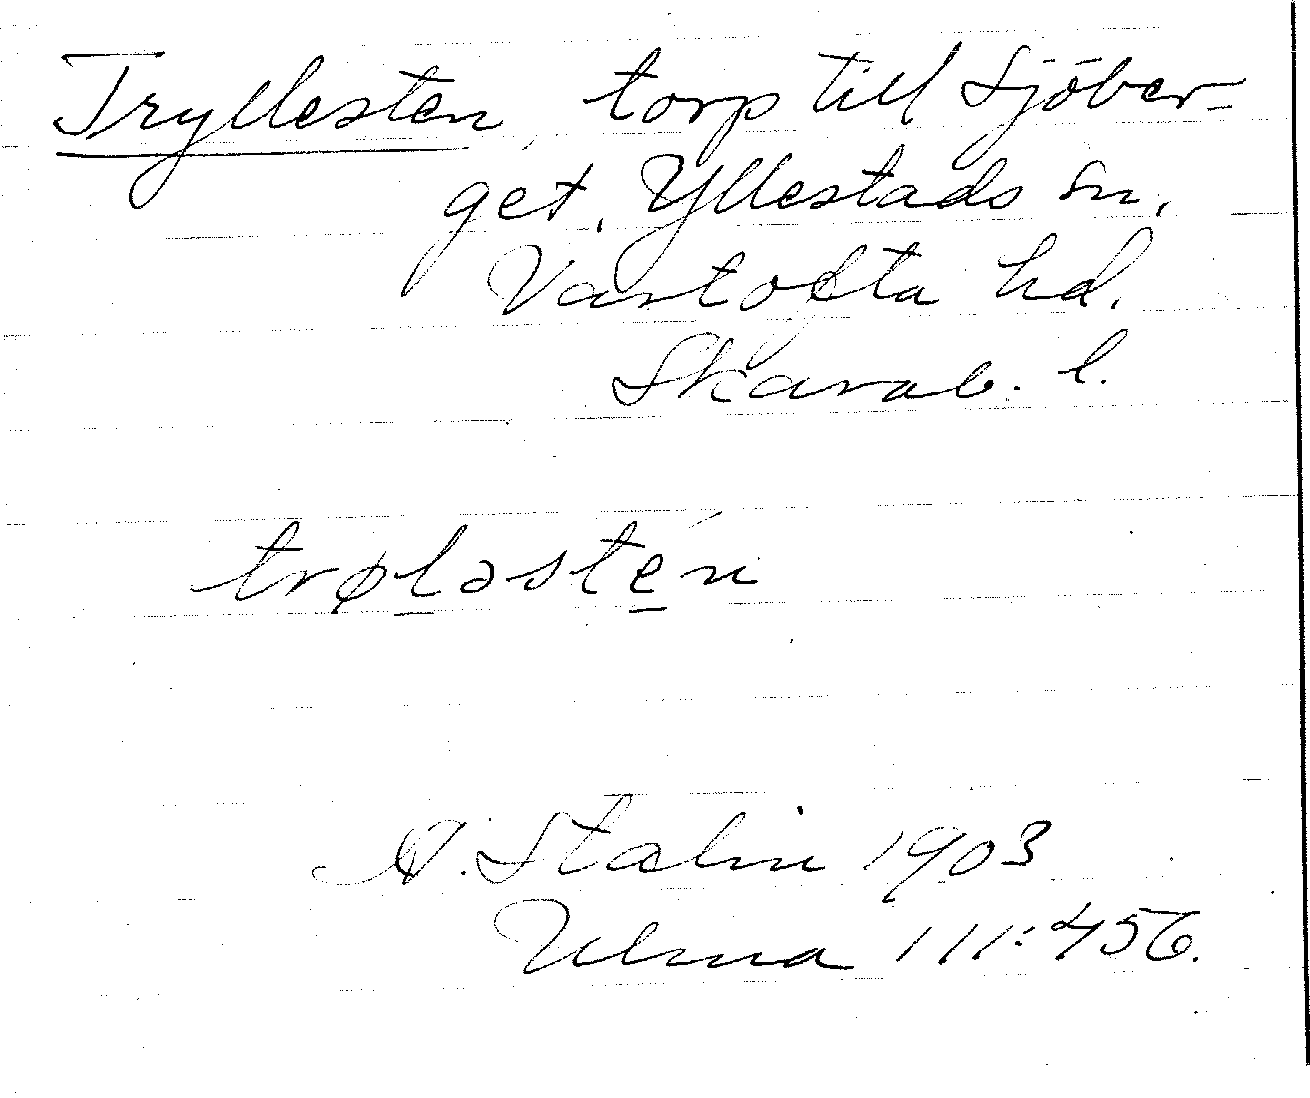 Tryllesten, torp till Sjöber-
get, Yllestads sn,
Vartofta hd.
Skarab. l.
trøləstén
A. Stalin 1903
Ulma 111:456.